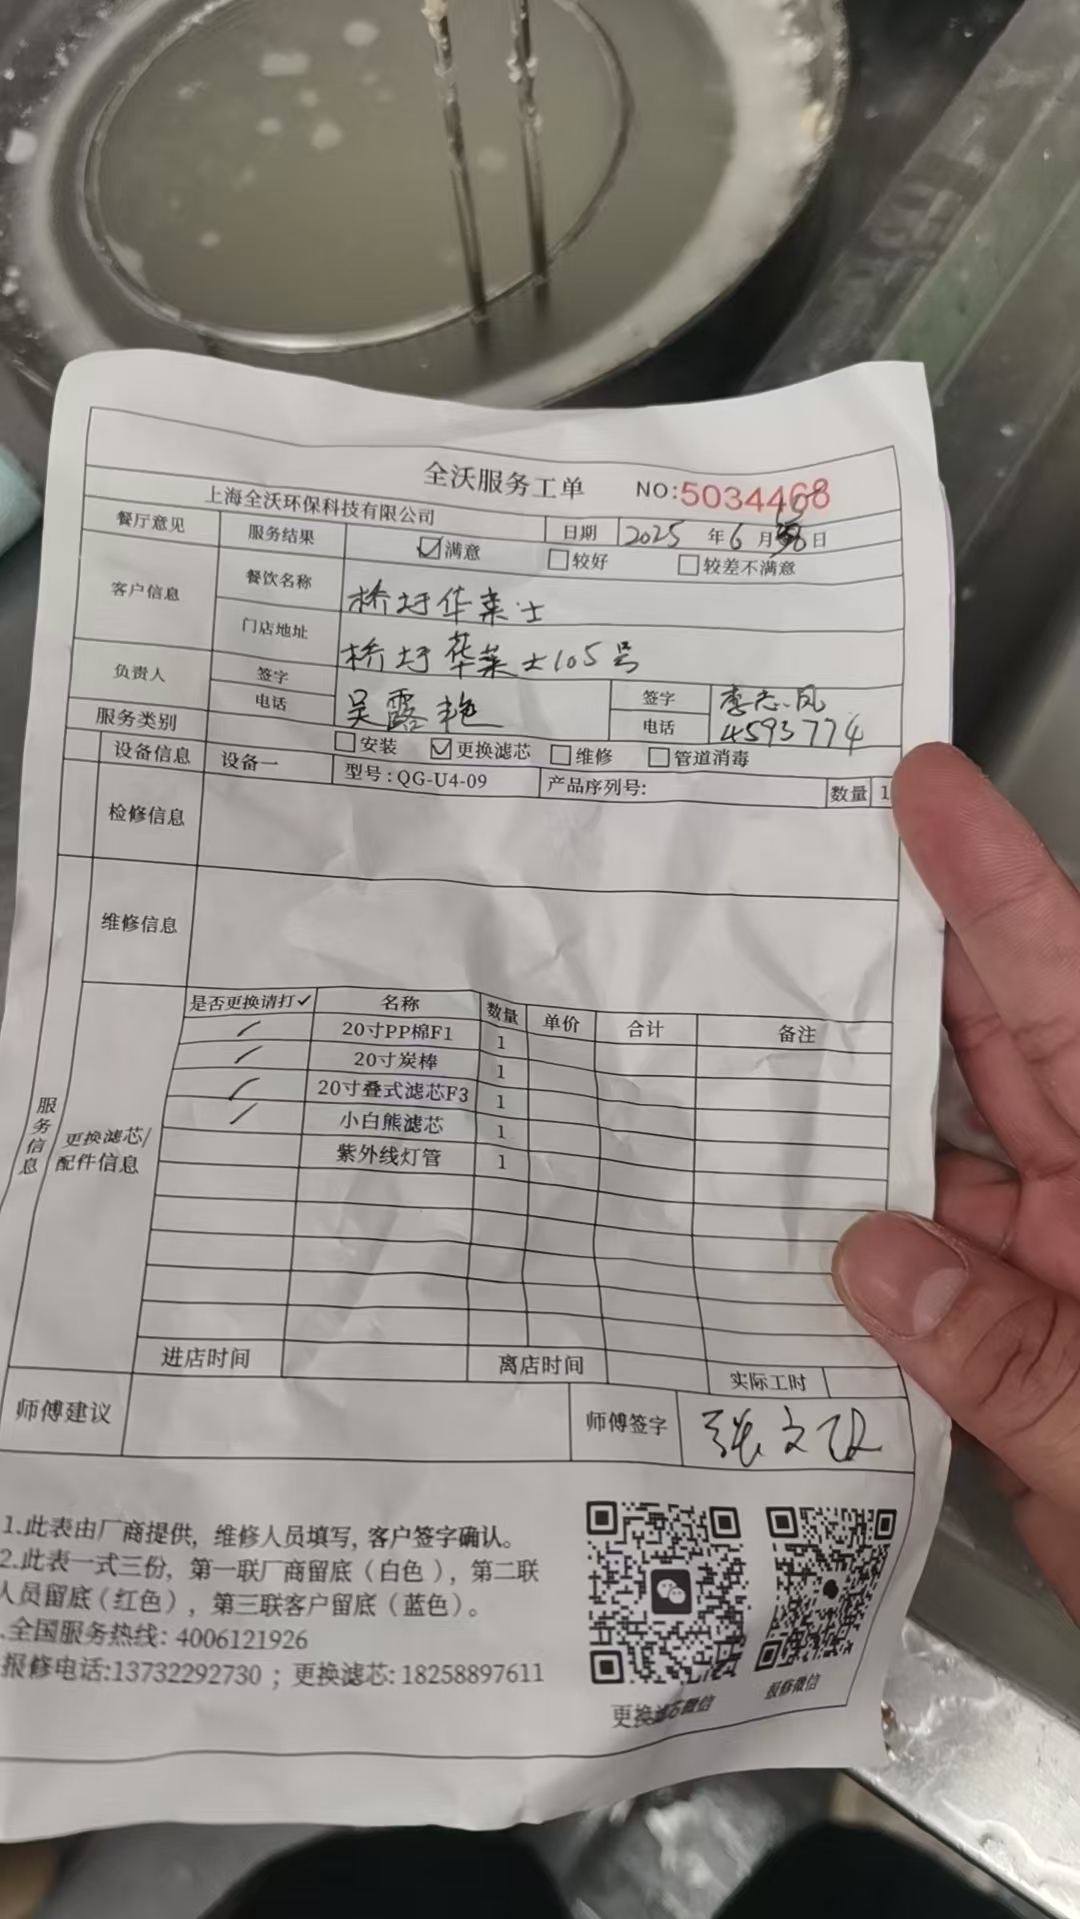 全沃服务工单 NO:5034468
上海全沃环保科技有限公司 日期 2025 年 6 月 日
餐厅意见 服务结果 ☑满意 □较好 □较差不满意
客户信息 餐饮名称 桥圩华莱士
门店地址 桥圩华莱士105号
负责人 签字 吴露艳 签字 李志凤
电话 电话 4593774
服务类别 □安装 ☑更换滤芯 □维修 □管道消毒
设备信息 设备一 型号:QG-U4-09 产品序列号: 数量 1
检修信息
维修信息
服务信息
更换滤芯/配件信息
是否更换请打✓ 名称 数量 单价 合计 备注
✓ 20寸PP棉F1 1
✓ 20寸炭棒 1
✓ 20寸叠式滤芯F3 1
✓ 小白熊滤芯 1
紫外线灯管 1
进店时间 离店时间 实际工时
师傅建议 师傅签字 张文
1.此表由厂商提供, 维修人员填写, 客户签字确认。
2.此表一式三份, 第一联厂商留底(白色), 第二联
人员留底(红色), 第三联客户留底(蓝色)。
.全国服务热线: 4006121926
报修电话:13732292730 ; 更换滤芯: 18258897611
更换滤芯微信 报修微信